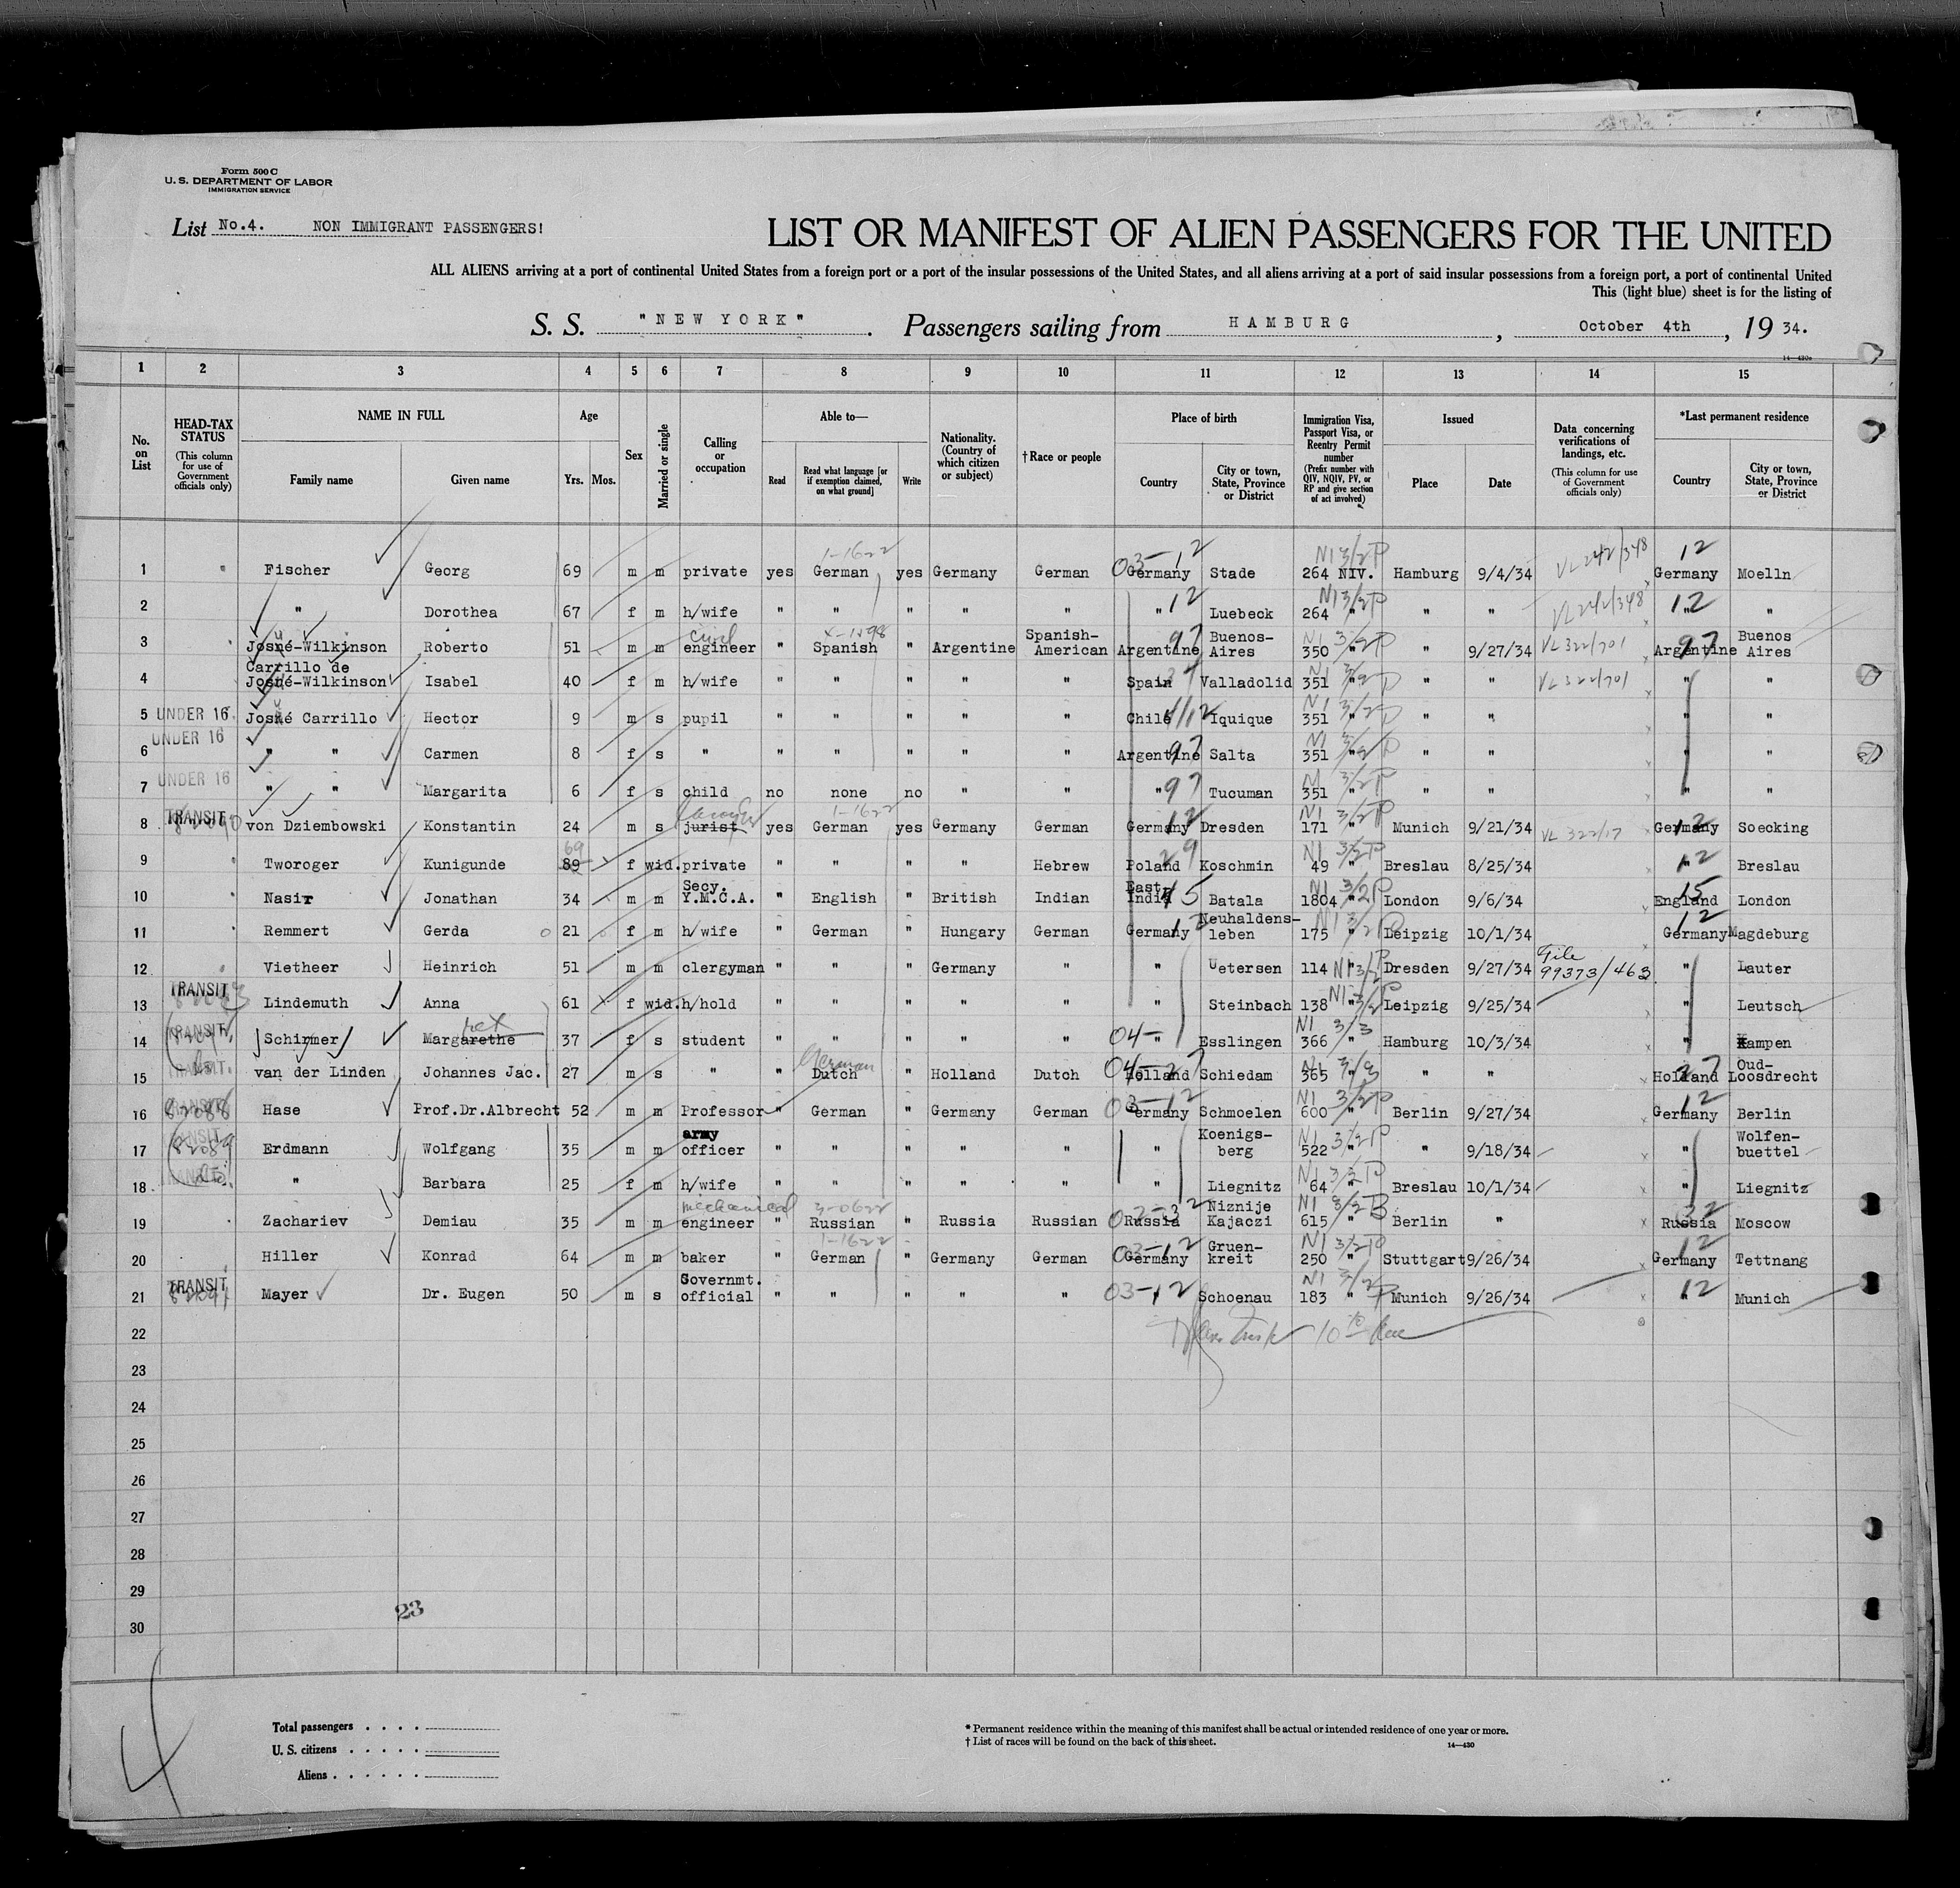 Form 500 C
U. S. DEPARTMENT OF LABOR
IMMIGRATION SERVICE
List No.4. NON IMMIGRANT PASSENGERS!
LIST OR MANIFEST OF ALIEN PASSENGERS FOR THE UNITED
ALL ALIENS arriving at a port of continental United States from a foreign port or a port of the insular possessions of the United States, and all aliens arriving at a port of said insular possessions from a foreign port, a port of continental United
This (light blue) sheet is for the listing of
S. S. "NEW YORK" . Passengers sailing from HAMBURG , October 4th , 19 34.
1 2 3 4 5 6 7 8 9 10 11 12 13 14 15
No. on List
HEAD-TAX STATUS (This column for use of Government officials only)
NAME IN FULL Family name Given name
Age Yrs. Mos.
Sex
Married or single
Calling or occupation
Able to— Read Read what language [or if exemption claimed, on what ground] Write
Nationality. (Country of which citizen or subject)
†Race or people
Place of birth Country City or town, State, Province or District
Immigration Visa, Passport Visa, or Reentry Permit number (Prefix number with QIV, NQIV, PV, or RP and give section of act involved)
Issued Place Date
Data concerning verifications of landings, etc. (This column for use of Government officials only)
*Last permanent residence Country City or town, State, Province or District
1-1622 03-12 N1 3/2P VL 242/348 12
1 Fischer Georg 69 m m private yes German yes Germany German Germany Stade 264 NIV. Hamburg 9/4/34 Germany Moelln
12 N1 3/2P VL 242/348 12
2 " Dorothea 67 f m h/wife " " " " " " Luebeck 264 " " " " "
civil X-1598 Spanish- 97 Buenos- N1 3/2P VL 322/701 97 Buenos
3 Josué-Wilkinson Roberto 51 m m engineer " Spanish " Argentine American Argentine Aires 350 " " 9/27/34 Argentine Aires
Carrillo de N1 3/2P VL 322/701
4 Josué-Wilkinson Isabel 40 f m h/wife " " " " " Spain Valladolid 351 " " " " "
5 UNDER 16 Josué Carrillo Hector 9 m s pupil " " " " " Chile Iquique 351 " " " " "
6 UNDER 16 " " Carmen 8 f s " " " " " " Argentine 97 Salta 351 " " " " "
7 UNDER 16 " " Margarita 6 f s child no none no " " " 97 Tucuman 351 " " " " "
lawyer 1-1622 12 N1 3/2P VL 322/17 12
8 TRANSIT von Dziembowski Konstantin 24 m s jurist yes German yes Germany German Germany Dresden 171 " Munich 9/21/34 Germany Soecking
69 29 N1 3/2P 12
9 Tworoger Kunigunde 89 f wid. private " " " " Hebrew Poland Koschmin 49 " Breslau 8/25/34 " Breslau
Secy. East 15 N1 3/2P 15
10 Nasir Jonathan 34 m m Y.M.C.A. " English " British Indian India Batala 1804 " London 9/6/34 England London
12 Neuhaldens- N1 3/2P 12
11 Remmert Gerda 21 f m h/wife " German " Hungary German Germany leben 175 " Leipzig 10/1/34 Germany Magdeburg
12 Vietheer Heinrich 51 m m clergyman " " " Germany " " Uetersen 114 " N1 3/2P Dresden 9/27/34 File 99373/463 " Lauter
13 TRANSIT Lindemuth Anna 61 f wid. h/hold " " " " " " Steinbach 138 " N1 3/2P Leipzig 9/25/34 " Leutsch
14 TRANSIT Schirmer Margarethe 37 f s student " " " " " 04- " Esslingen 366 " N1 3/3 Hamburg 10/3/34 " Kampen
German 04-27 N1 3/3 27 Oud-
15 TRANSIT van der Linden Johannes Jac. 27 m s " " Dutch " Holland Dutch Holland Schiedam 365 " " " Holland Loosdrecht
03-12 N1 3/2P 12
16 TRANSIT 82088 Hase Prof.Dr.Albrecht 52 m m Professor " German " Germany German Germany Schmoelen 600 " Berlin 9/27/34 Germany Berlin
army Koenigs- N1 3/2P Wolfen-
17 TRANSIT 82089 Erdmann Wolfgang 35 m m officer " " " " " " berg 522 " " 9/18/34 " buettel
18 TRANSIT do. " Barbara 25 f m h/wife " " " " " " Liegnitz 64 " N1 3/2P Breslau 10/1/34 " Liegnitz
mechanical 3-0622 Niznije N1 3/2P 32
19 Zachariev Demiau 35 m m engineer " Russian " Russia Russian Russia Kajaczi 615 " Berlin " Russia Moscow
1-1622 03-12 Gruen- N1 3/2P 12
20 Hiller Konrad 64 m m baker " German " Germany German Germany kreit 250 " Stuttgart 9/26/34 Germany Tettnang
Governmt. N1 3/2P
21 TRANSIT 82091 Mayer Dr. Eugen 50 m s official " " " " " 03-12 Schoenau 183 " Munich 9/26/34 12 " Munich
22
23
24
25
26
27
28
29
30
23
4
Total passengers . . . .
U. S. citizens . . . . .
Aliens . . . . . .
* Permanent residence within the meaning of this manifest shall be actual or intended residence of one year or more.
† List of races will be found on the back of this sheet.
14—430